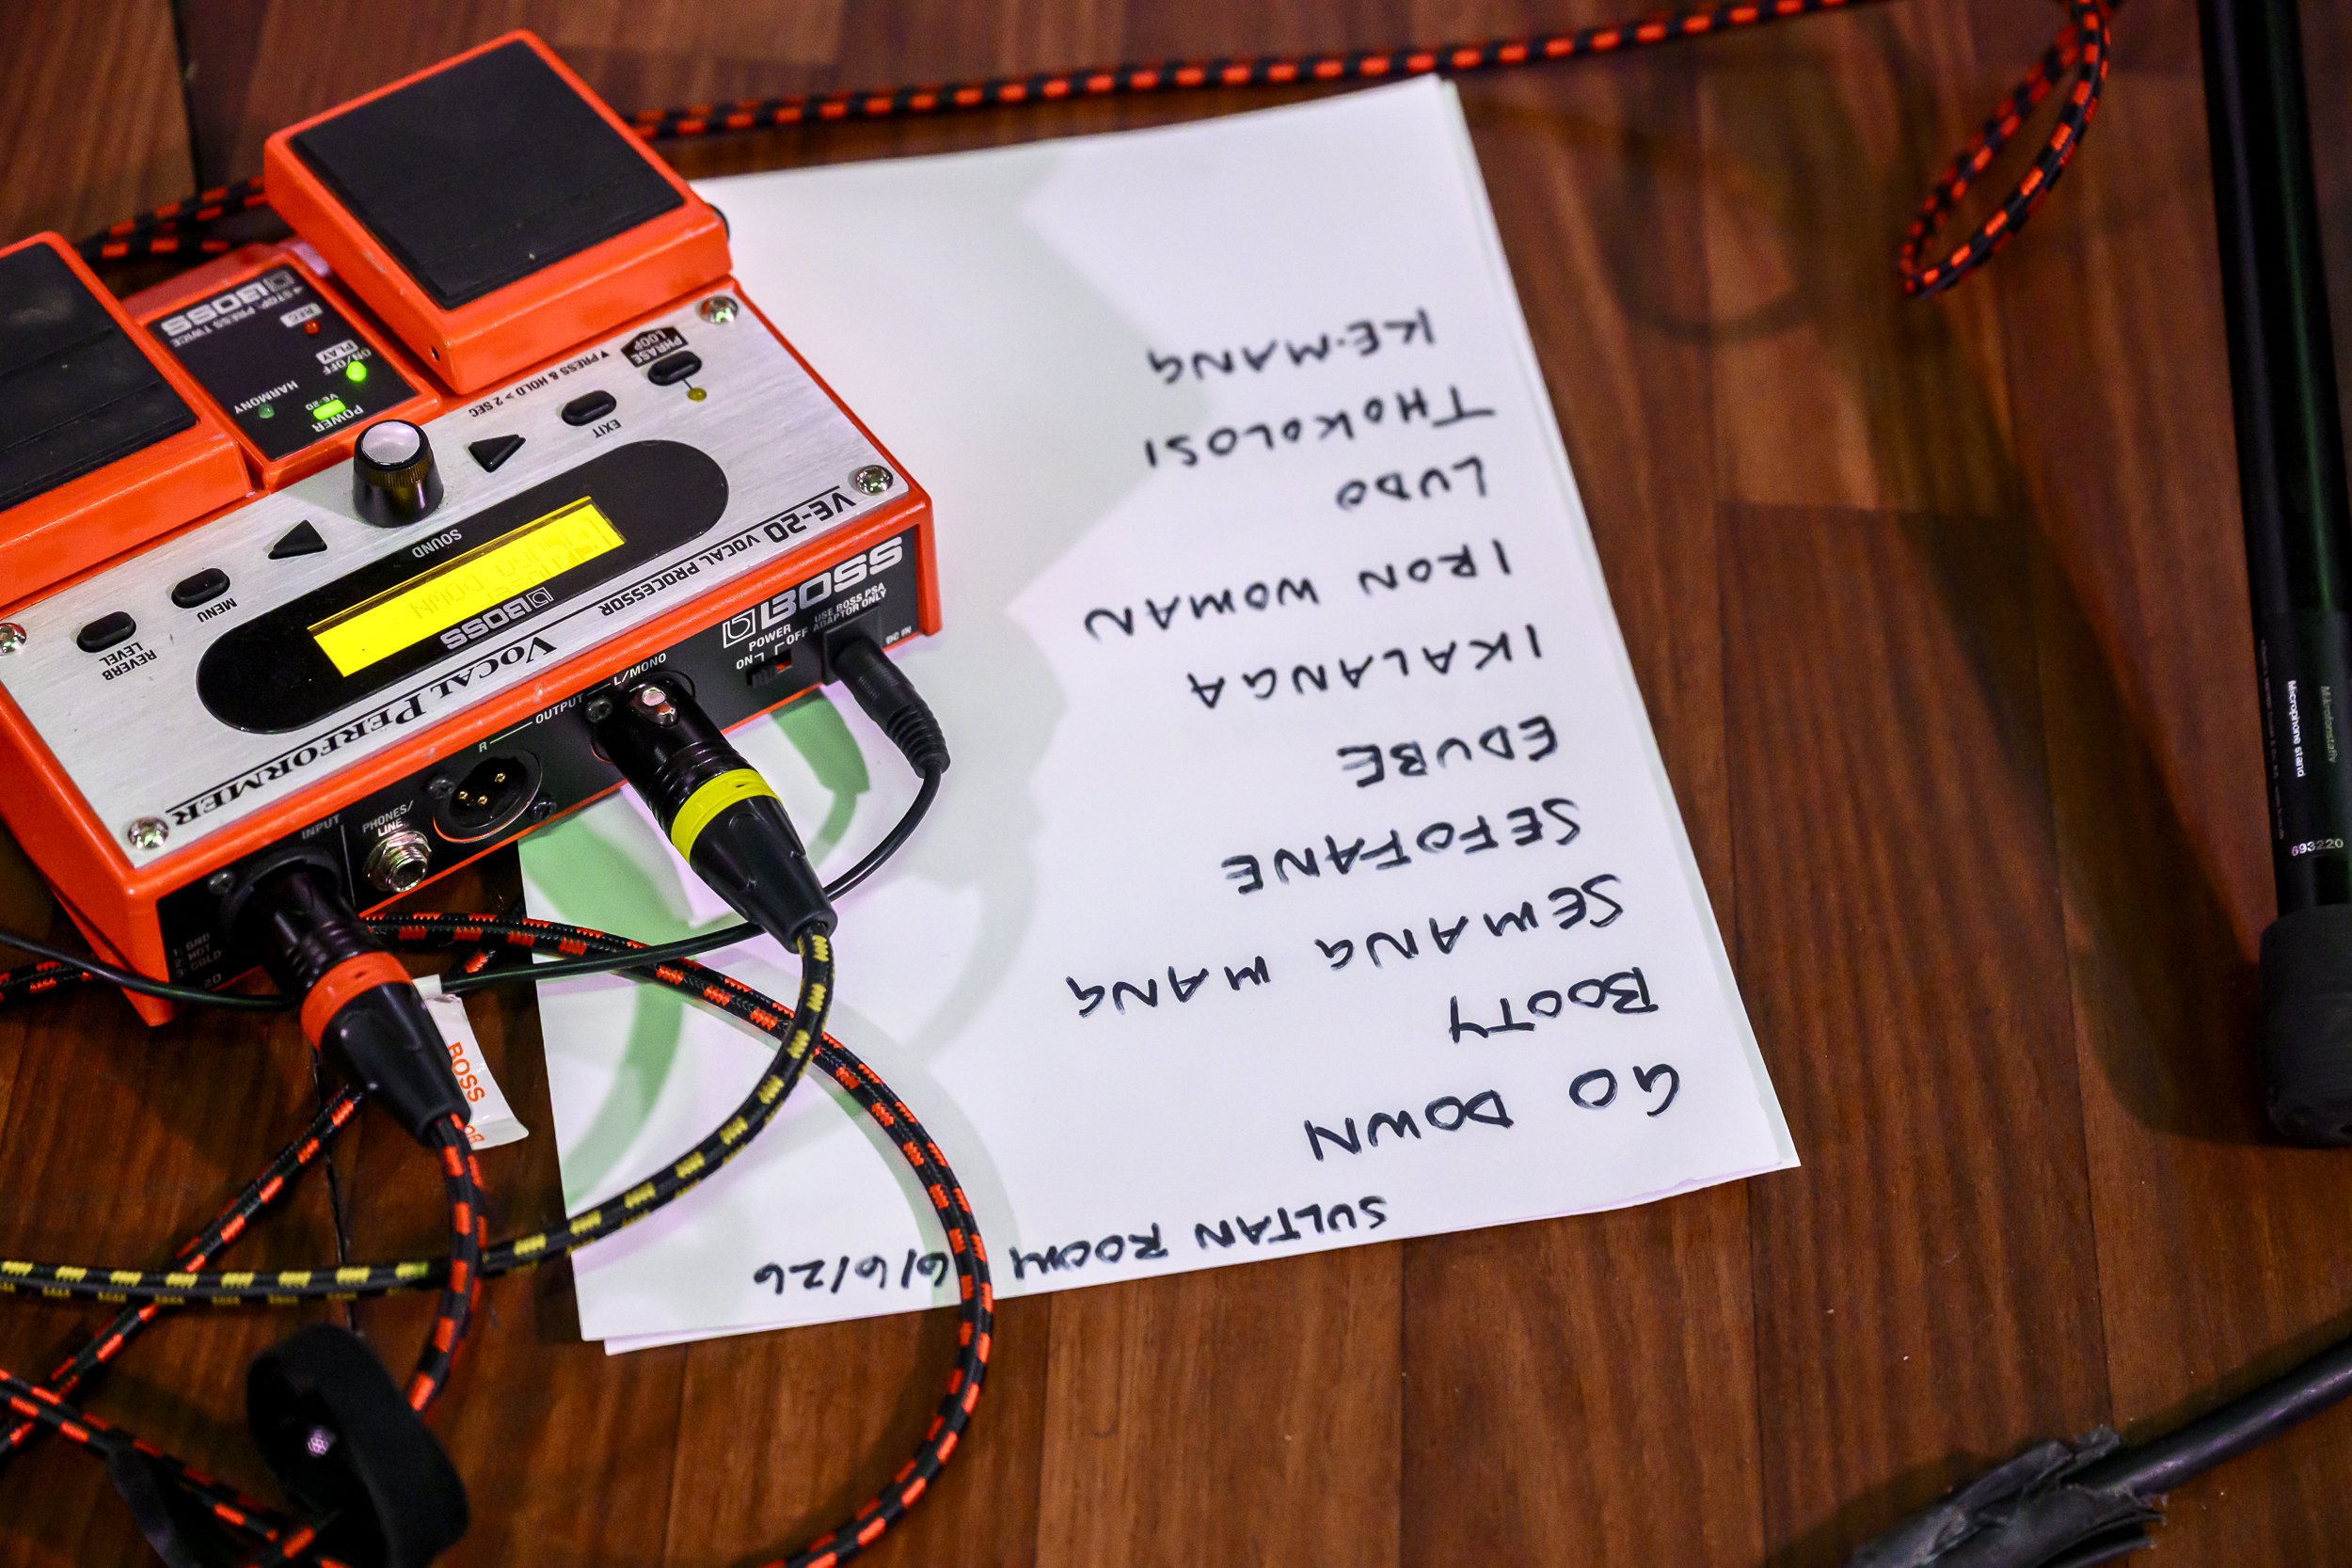 SULTAN ROOM 6/6/26
GO DOWN
BOOTY
SEMANG MANG
SEFOFANE
EDUBE
IKALANGA
IRON WOMAN
LUDO
THOKOLOSI
KE-MANG
INPUT
PHONES/
LINE
R
OUTPUT
L/MONO
POWER
ON
OFF
BOSS
USE BOSS PSA
ADAPTOR ONLY
DC IN
1: GND
2: HOT
3: COLD
VOCAL PERFORMER
VE-20 VOCAL PROCESSOR
BOSS
GO DOWN
REVERB
LEVEL
MENU
SOUND
EXIT
PHRASE
LOOP
▼PRESS & HOLD > 2 SEC
POWER
VE-20
ON/OFF
HARMONY
PLAY
REC
◄STOP: PRESS TWICE
BOSS
BOSS
Mikrofonstativ
Microphone stand
693220